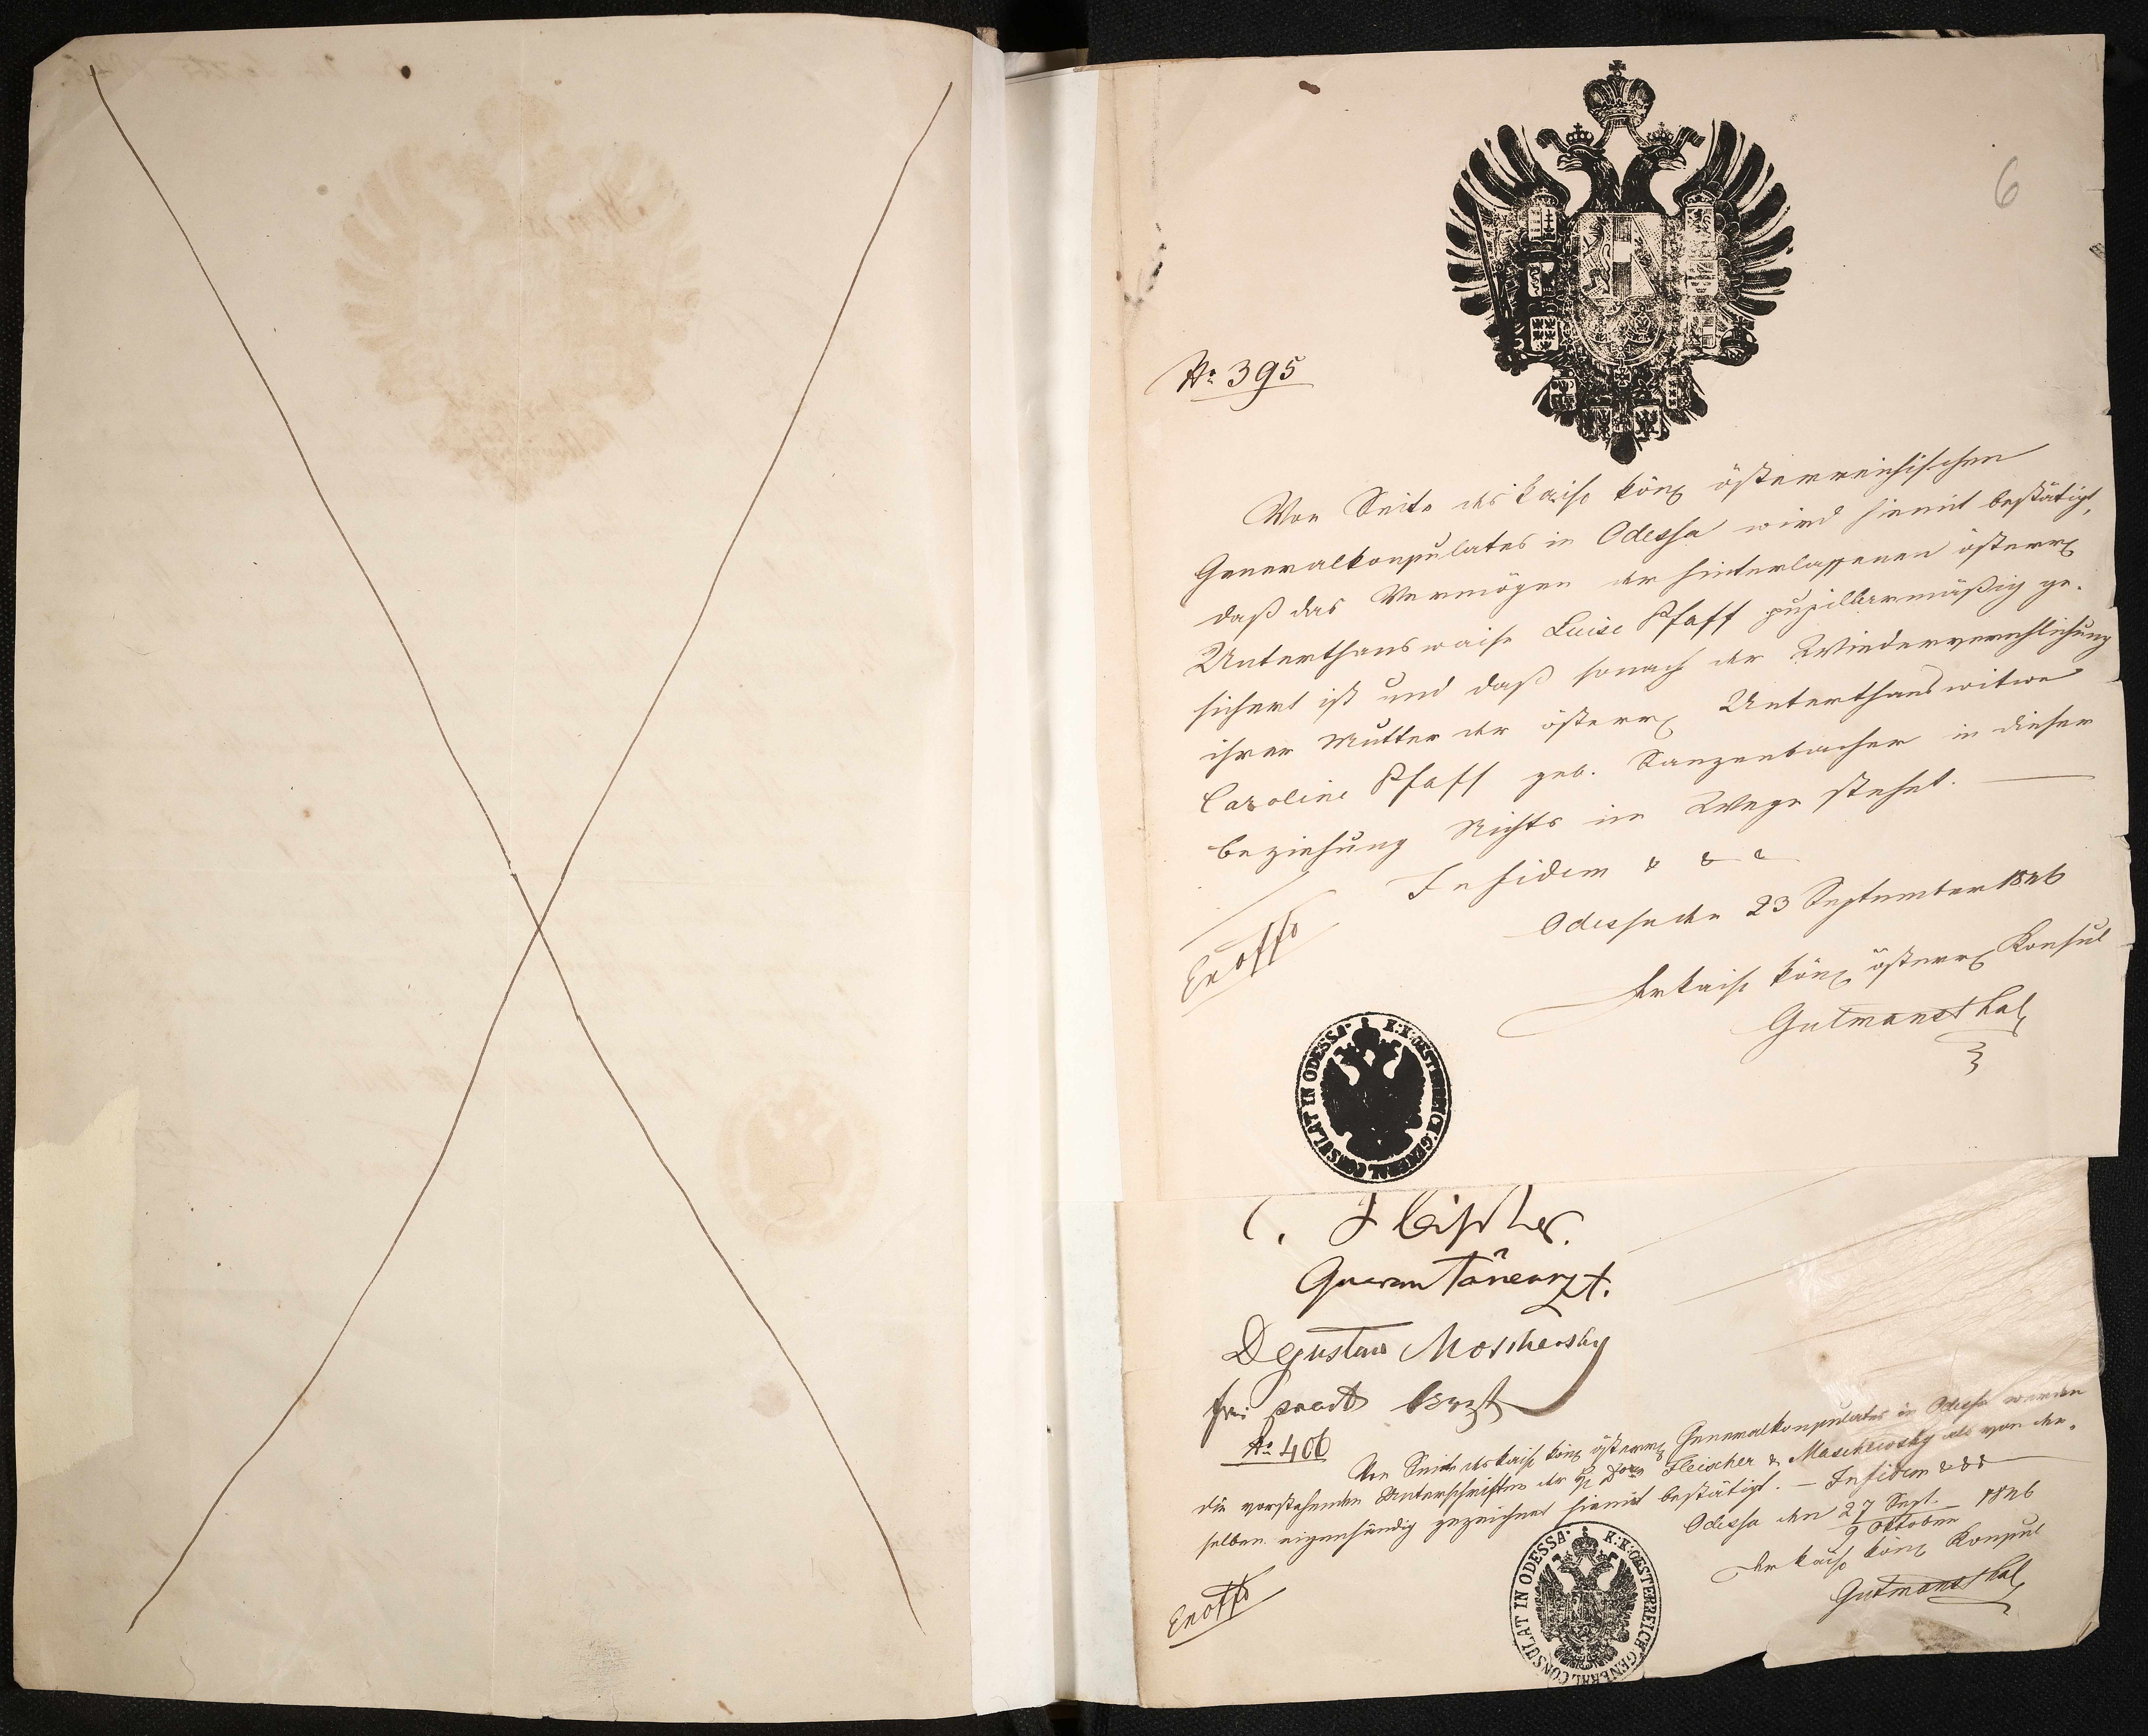 6
No 395
Von Seite des kais. kön. österreichischen
Generalkonsulates in Odessa wird hiemit bestätigt,
daß das Vermögen der hinterlassenen österr.
Unterthanswaise Luise Pfaff pupillarmäßig ge-
sichert ist und daß sonach der Wiederverehlichung
ihrer Mutter der österr. Unterthanswitwe
Caroline Pfaff geb. Sanzenbacher in dieser
Beziehung Nichts im Wege stehet.
In fidem & & &
Odessa den 23 September 1846
Ex offo
Der kais. kön. österr. Konsul
Gutmansthal
K: K: OESTERREICH: GENERAL CONSULAT IN ODESSA
C. Fleischer.
Quarantänearzt.
D Gustav Moschewsky
frei pract Arzt
No 406
Von Seite des kais. kön. österr. Generalkonsulates in Odessa werden
die vorstehenden Unterschriften der Doren Fleischer & Moschewsky als von den-
selben eigenhändig gezeichnet hiemit bestätigt. — In fidem & & &
Odessa den 27 Sept. 1846
9 Oktober
Ex offo
Der kais. kön. Konsul
Gutmansthal
K: K: OESTERREICH: GENERAL CONSULAT IN ODESSA